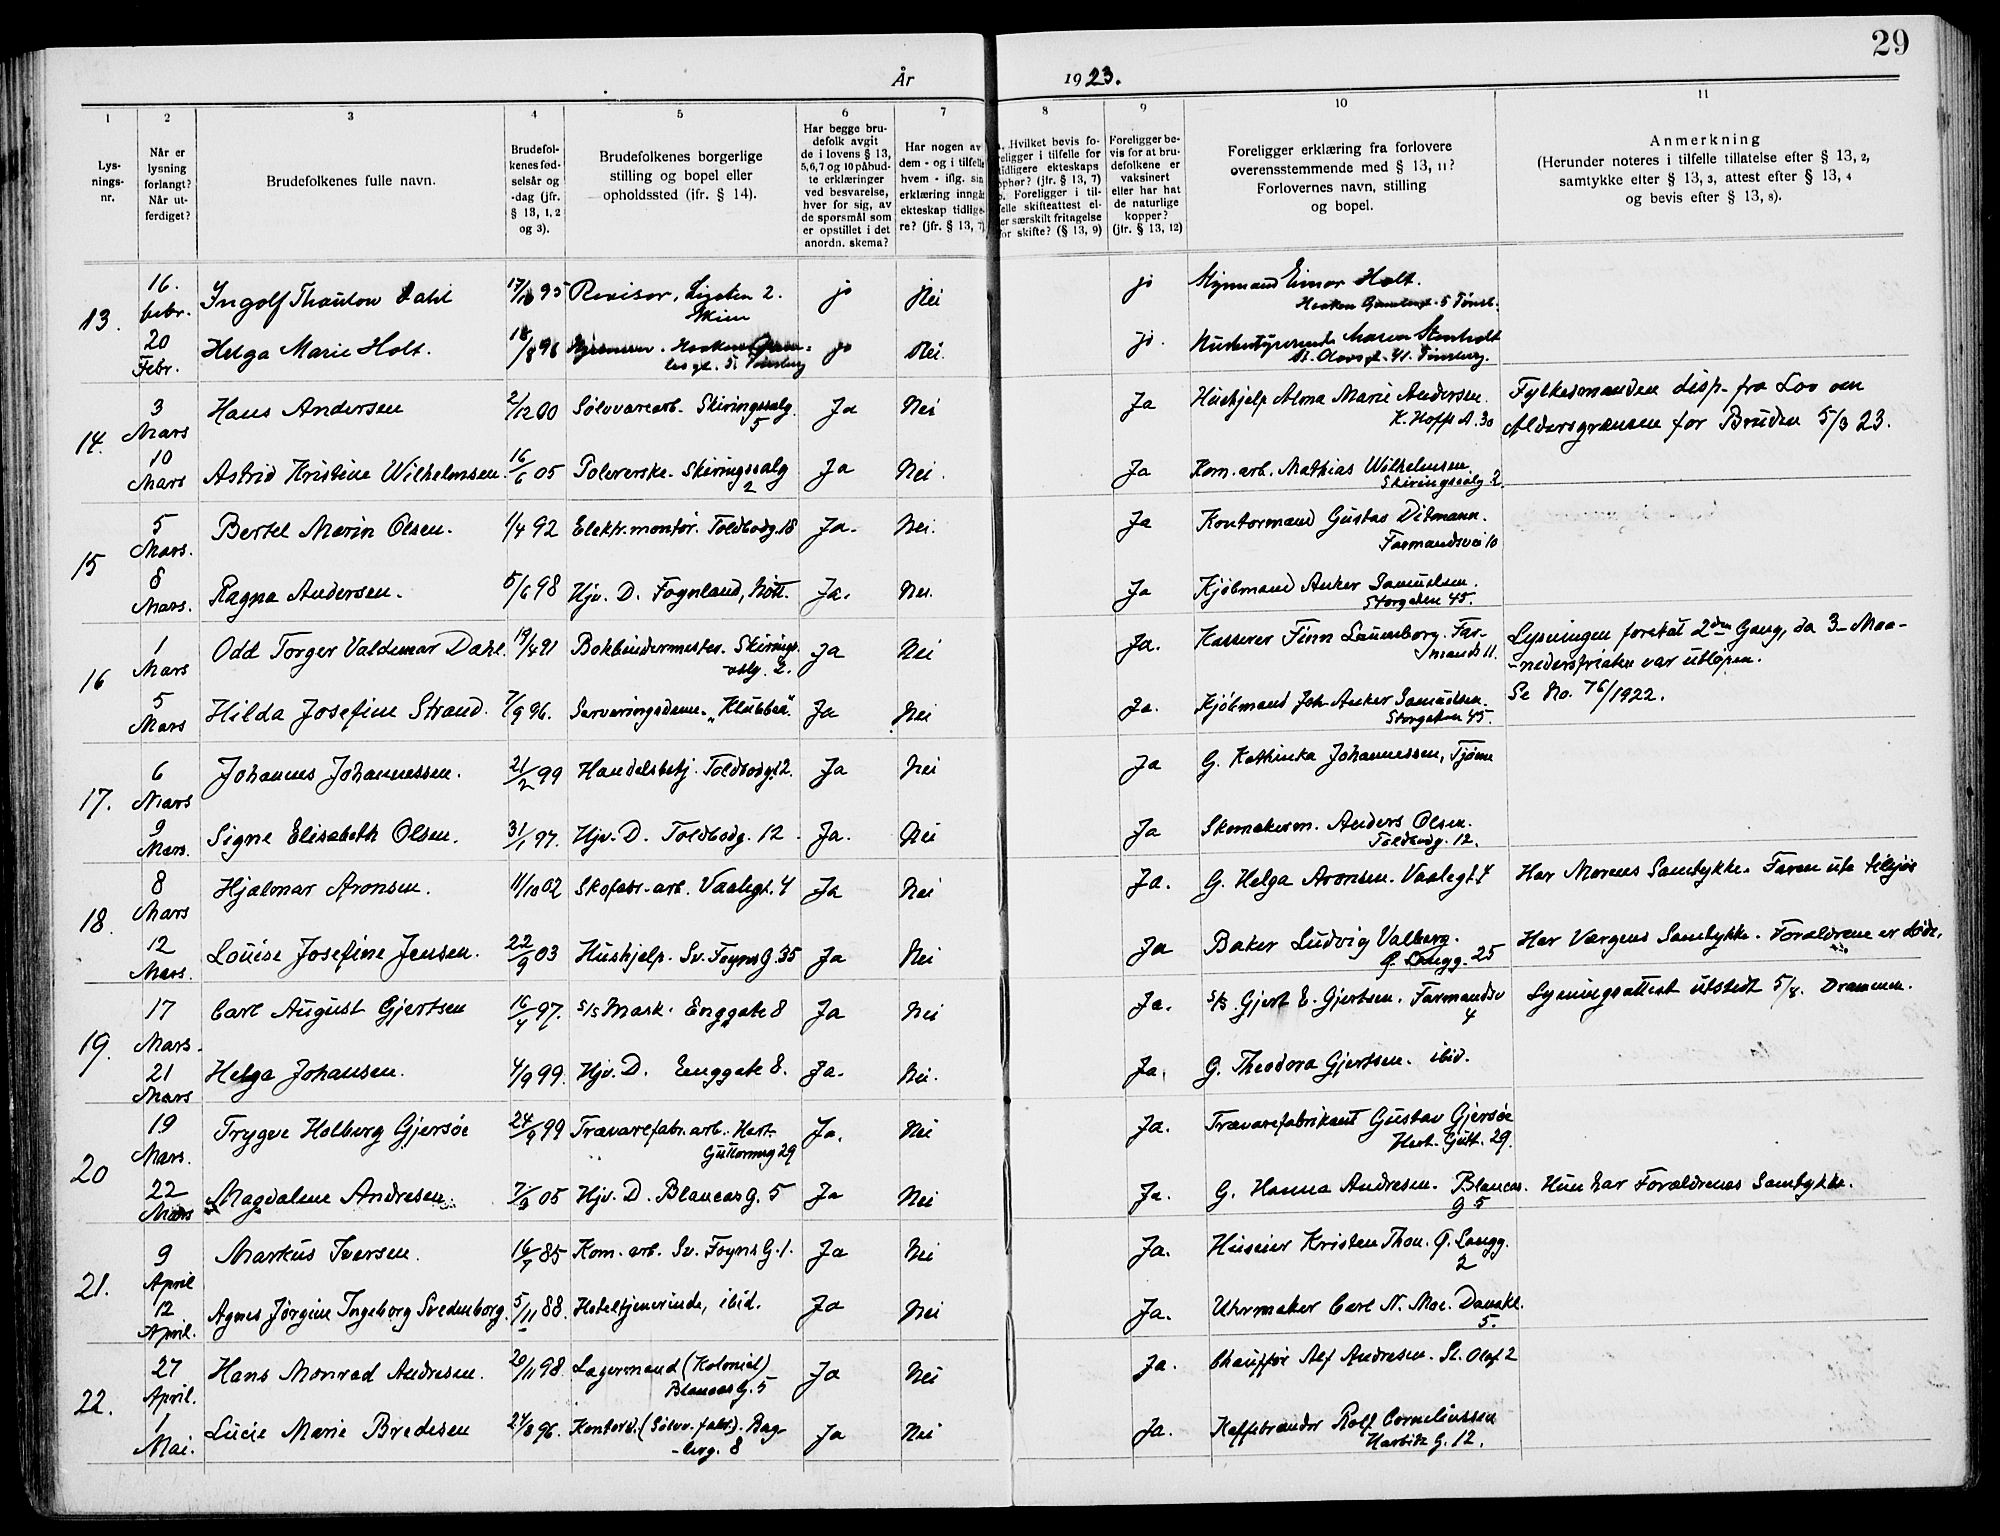 29
År 1923.
1
2
3
4
5
6
7
8
9
10
11
Lys-
nings-
nr.
Når er
lysning
forlangt?
Når ut-
ferdiget?
Brudefolkenes fulle navn.
Brudefol-
kenes fød-
selsår og
-dag (jfr.
§ 13, 1, 2
og 3).
Brudefolkenes borgerlige
stilling og bopel eller
opholdssted (jfr. § 14).
Har begge bru-
defolk avgit
de i lovens § 13,
5,6,7 og 10 påbud-
te erklæringer
ved besvarelse,
hver for sig, av
de spørsmål som
er opstillet i det
anordn. skema?
Har nogen av
dem - og i tilfelle
hvem - iflg. sin
erklæring inngått
ekteskap tidlige-
re? (jfr. § 13, 7)
Hvilket bevis fo-
religger i tilfelle for
tidligere ekteskaps
ophør? (jfr. § 13, 7)
b. Foreligger i til-
felle skifteattest el-
ler særskilt fritagelse
for skifte? (§ 13, 9)
Foreligger be-
vis for at bru-
defolkene er
vaksinert
eller har hat
de naturlige
kopper?
(jfr. § 13, 12)
Foreligger erklæring fra forlovere
overensstemmende med § 13, 11?
Forlovernes navn, stilling
og bopel.
Anmerkning
(Herunder noteres i tilfelle tillatelse efter § 13, 2,
samtykke efter § 13, 3, attest efter § 13, 4
og bevis efter § 13, 8).
13.
16. febr. Ingolf Thaulow Dahl 95 Revisor, 2. jo Nei jo Styrmand Einar Holt.
Skien 5 Tønsb.
20 Febr. Helga Marie Holt. 18/8 96 jo Nei jo. Maren Stenholt
St. Olavsgt. 41. Tønsberg.
14.
3 Mars Hans Andersen 2/12 00 Sølvvarearb. Skiringssalg. 5 Ja Nei Ja Hushjelp Alma Marie Andersen. K. Hoffs A. 30 Fylkesmanden disp. fra Lov om
Aldersgrænsen for Bruden 5/3 23.
10 Mars Astrid Kristine Wilhelmsen. 16/6 05 Polererske. Skiringssalg 2 Ja Nei. Ja Kom. arb. Mathias Wilhelmsen. Skiringssalg 2.
15
5 Mars. Bertel Marin Olsen. 1/4 92 Elektr. montør. Toldbodg. 18 Ja. Nei. Ja Kontormand Gustav Ditmann. Farmandsvei 10
8 Mars. Ragna Andersen. 5/6 98 Hjv. D. Føynland, Nøtt. Ja. Nei. Ja Kjøbmand Anker Samuelsen. Storgaten 45.
16
1 Mars Odd Torger Valdemar Dahl 19/4 91 Bokbindermester. Skirings-
salg. 2. Ja Nei Ja. Kasserer Finn Lauenborg. Far-
mands 11. Lysningen foretat 2den Gang, da 3-Maa-
nedersfristen var utløpen.
5 Mars Hilda Josefine Strand. 7/9 96. Serveringsdame. "Klubben". Ja Nei Ja. Kjøbmand Joh. Anker Samuelsen. Storgaten 45. Se No. 76/1922.
17.
6 Mars Johannes Johannessen. 21/2 99 Handelsbetj. Toldbodgt. 12. Ja Nei Ja G. Kathinka Johannessen, Tjøme
9 Mars. Signe Elisabeth Olsen. 31/1 97. Hjv. D. Toldbodg. 12 Ja. Nei Ja Skomakerm. Anders Olsen. Toldbodg. 12.
18.
8 Mars Hjalmar Aronsen. 11/10 02 Skofabr.-arb. Vaalegt. 4 Ja Nei Ja. G. Helga Aronsen. Vaalegt. 4 Har Morens Samtykke. Faren ute tilsjøs
12 Mars. Louise Josefine Jensen. 22/9 03 Hushjelp. Sv. Foyns G. 35 Ja Nei Ja Baker Ludvig Valberg. G. Langg. 25 Har Værgens Samtykke. Forældrene er døde.
19.
17 Mars. Carl August Gjertsen 16/4 97. S/s Mask. Enggate 8 Ja Nei Ja. S/s. Gjert E. Gjertsen. Farmandsv 4 Lysningsattest utstedt 5/8. Drammen.
21 Mars Helga Johansen. 4/9 99. Hjv. D. Enggate 8. Ja. Nei. Ja. G. Theodora Gjertsen. ibid.
20
19 Mars. Trygve Holberg Gjersøe 24/9 99 Trævarefabr. arb. Hert.
Guttormsg 29 Ja. Nei Ja. Trævarefabrikant Gustav Gjersøe
Hert. Gutt. 29.
22 Mars Magdalene Andresen. 05 Hjv. D. Blancas G. 5 Ja Nei Ja. G. Hanna Andresen. Blancas. G 5 Hun har Forældrenes Samtykke.
21.
9 April Markus Iversen. 85 Kom. arb. Sv. Foyns G. 1. Ja Nei Ja. Huseier Kristen Thon. G. Langg. 2
12 April. Agnes Jørgine Ingeborg Svedenborg. 5/11 88. Hotelltjenerinde, ibid. Ja Nei Ja. Uhrmaker Carl N. Moe. Danskl. 5.
22.
27 April. Hans Monrad Andresen. 20/11 98. Lagermand (Kolonial)
Blancas G. 5 Ja Nei Ja. Chauffør Alf Andresen. St. Olaf 2
1 Mai. Lucie Marie Bredesen 24/8 96. Kontord. (Sølvv. fabr). Bag-
lerg. 8 Ja Nei Ja. Kaffebrænder Rolf Corneliussen
Harbitz G. 12.